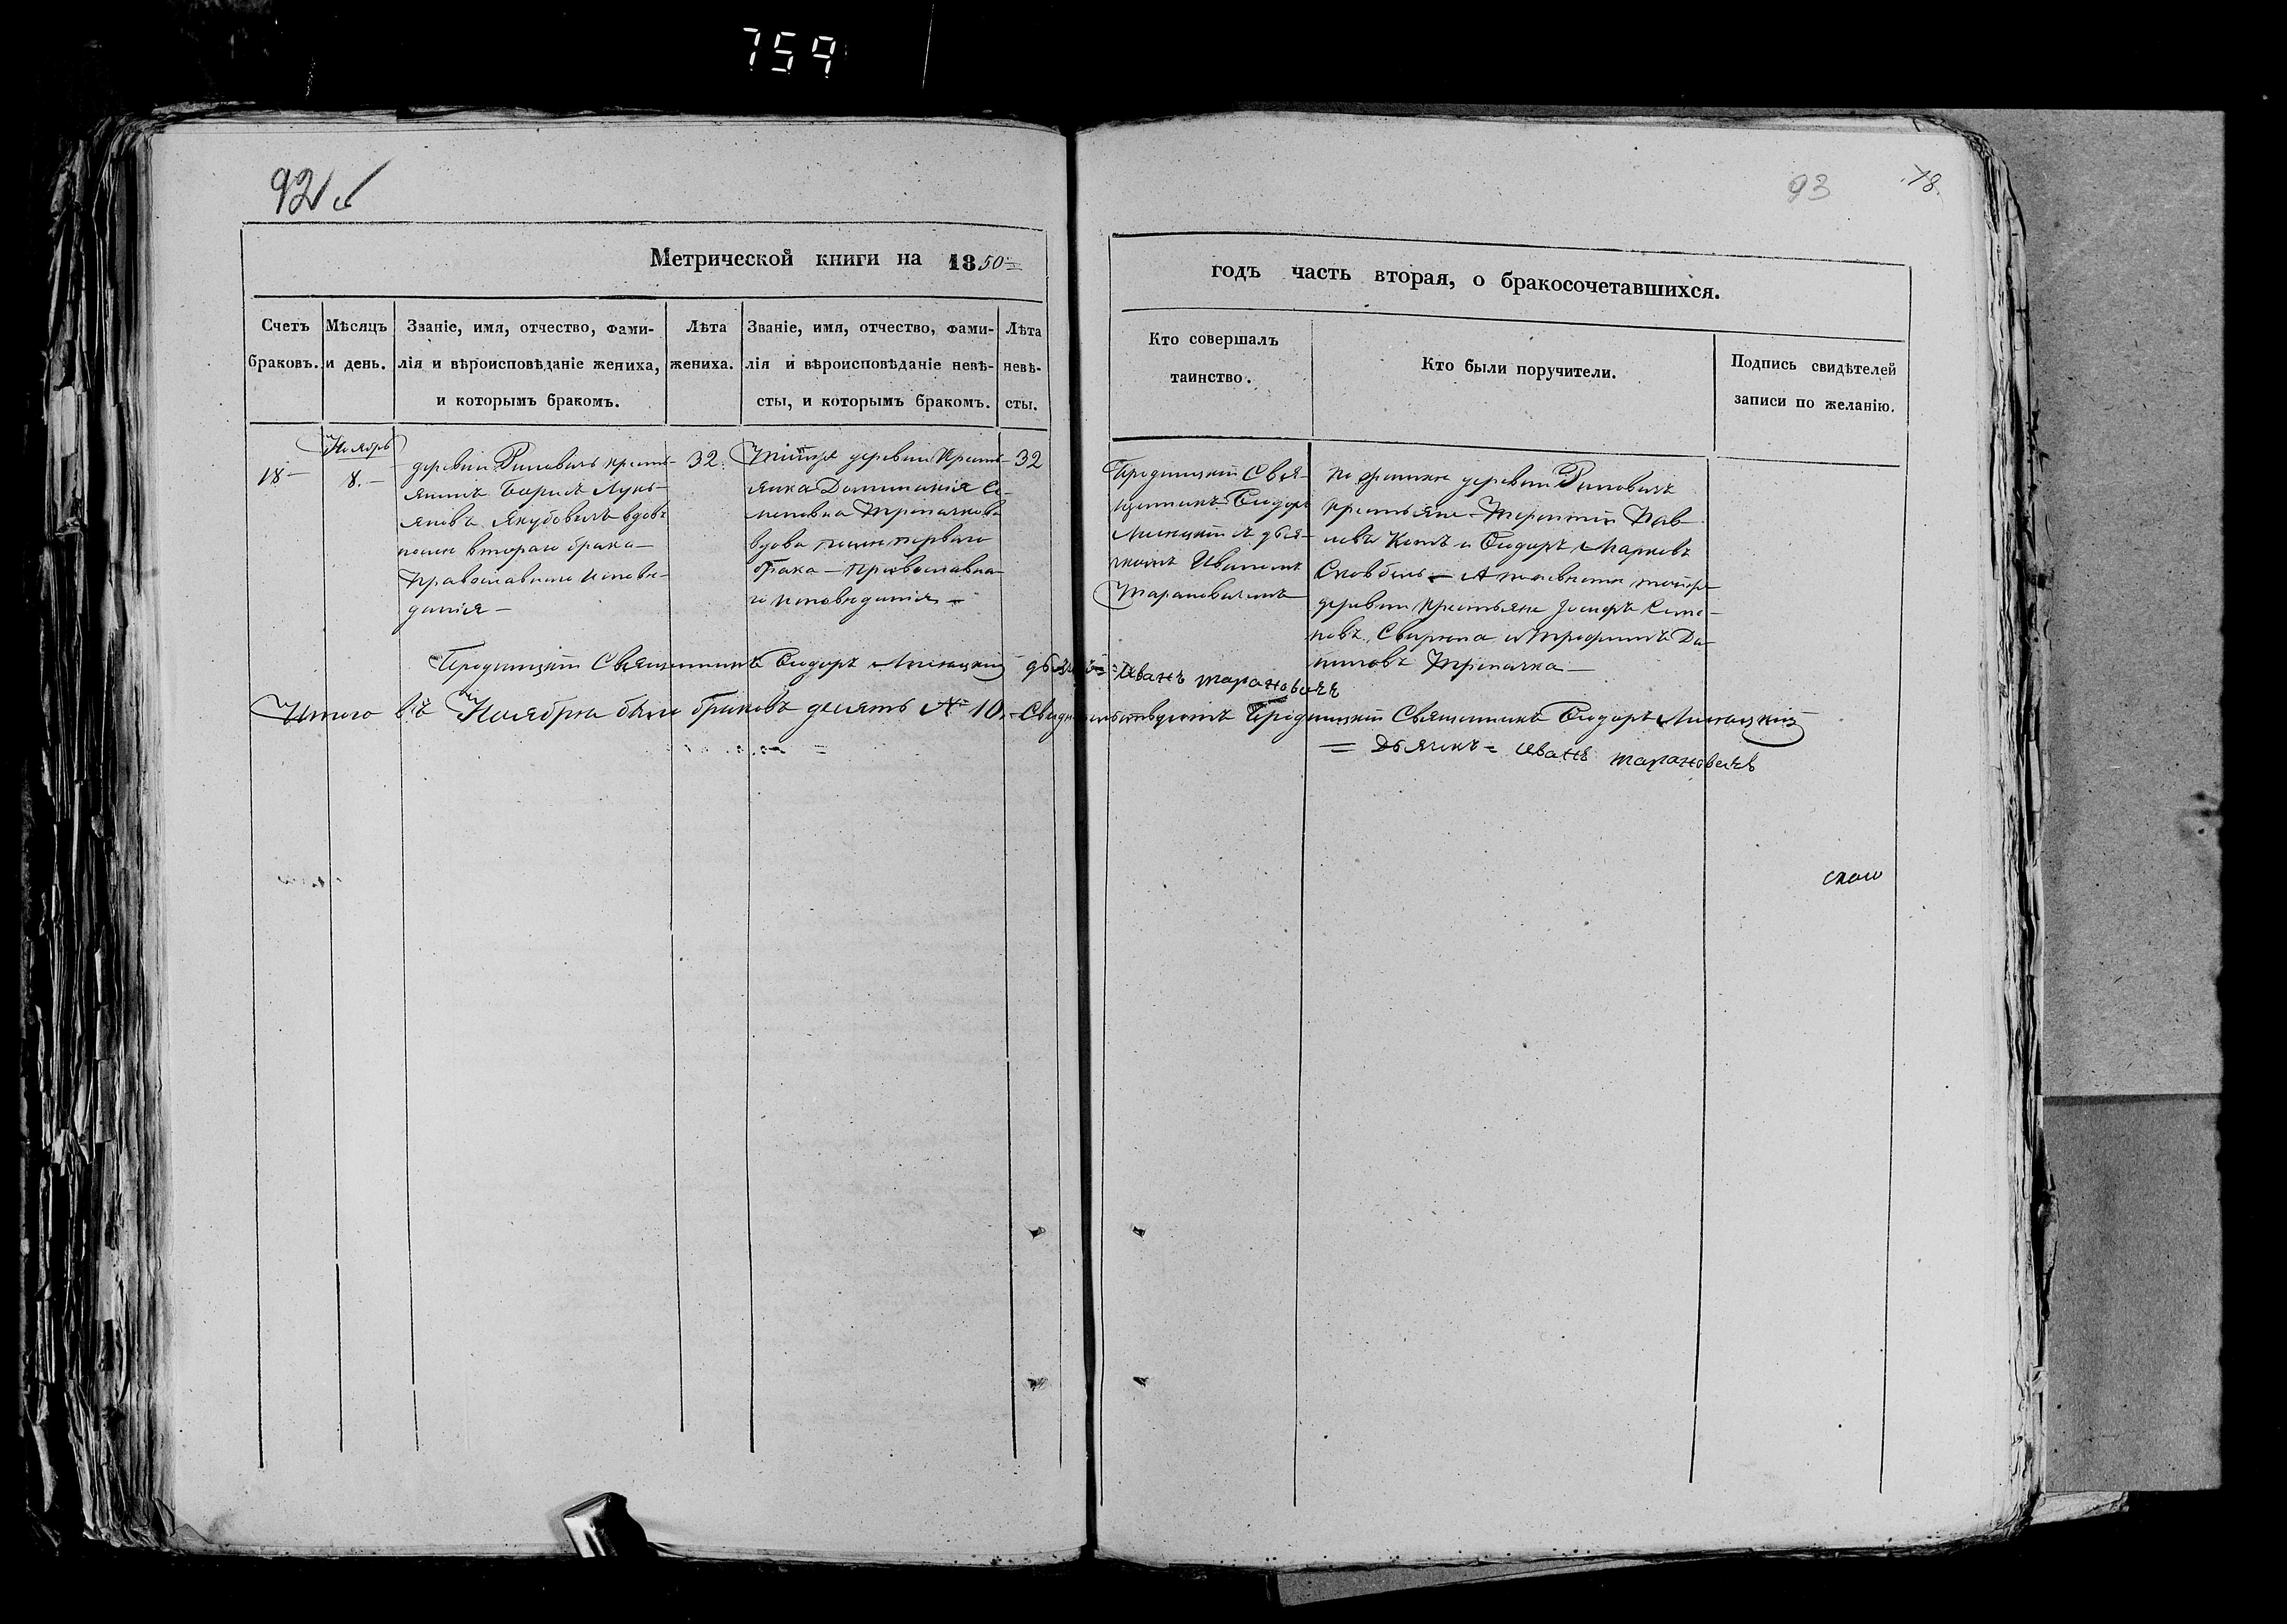 759
92
93
78.
Метрической книги на 1850
годъ часть вторая, о бракосочетавшихся.
Счетъ браковъ.
Мѣсяцъ и день.
Званіе, имя, отчество, фами-
лія и вѣроисповѣданіе жениха,
и которымъ бракомъ.
Лѣта
жениха.
Званіе, имя, отчество, фами-
лія и вѣроисповѣданіе невѣ-
сты, и которымъ бракомъ.
Лѣта
невѣ-
сты.
Кто совершалъ
таинство.
Кто были поручители.
Подпись свидѣтелей
записи по желанію.
18
Ноябрь
8.
деревни Риповичъ кресть-
янинъ Борисъ Лукь-
яновъ Якубовичъ вдовъ
после втораго брака
Православнаго исповѣ-
данія
32.
Тойже деревни Кресть-
янка Домникія Се-
меновна Трепачкова
вдова после перваго
брака Православна-
го исповѣданія
32
Свя-
щенникъ Ѳеодоръ
съ дья-
чкомъ Иваномъ
Тарановичемъ
По женихе деревни Риповичъ
крестьяне Терентій Пав-
ловъ Котъ и Ѳеодоръ Марковъ
А по невѣсте тойже
деревни крестьяне Іосифъ Семе-
новъ и Трофимъ Да-
ниловъ Трепачка
Священникъ Ѳеодоръ дьячекъ Иванъ Тарановичъ
Итого въ Ноябрѣ было браковъ десять № 10. Свидѣтельствуютъ Священникъ Ѳеодоръ
= Дьячекъ = Иванъ Тарановичъ